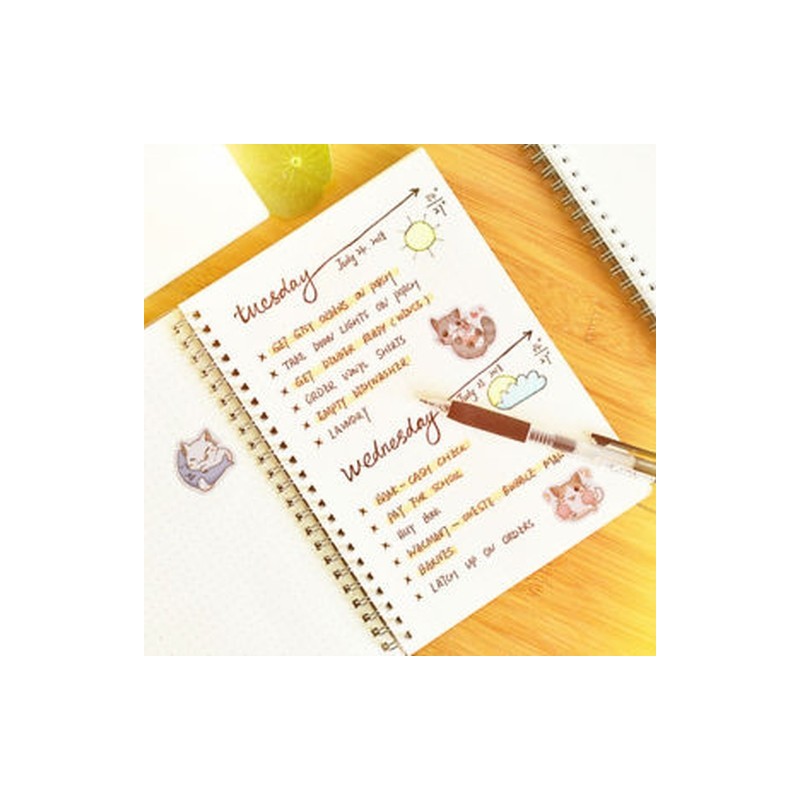 tuesday
July 24, 2018
GET GIFT ORDERS ON PORCH
TAKE DOWN LIGHTS ON PORCH
GET DINNER READY (WINGS)
ORDER VINYL SHIRTS
EMPTY DISHWASHER
LAUNDRY
wednesday
July 25, 2018
BANK - CASH CHECK
PAY FOR SCHOOL
BUY
WALMART -
BARNES
CATCH UP ON ORDERS